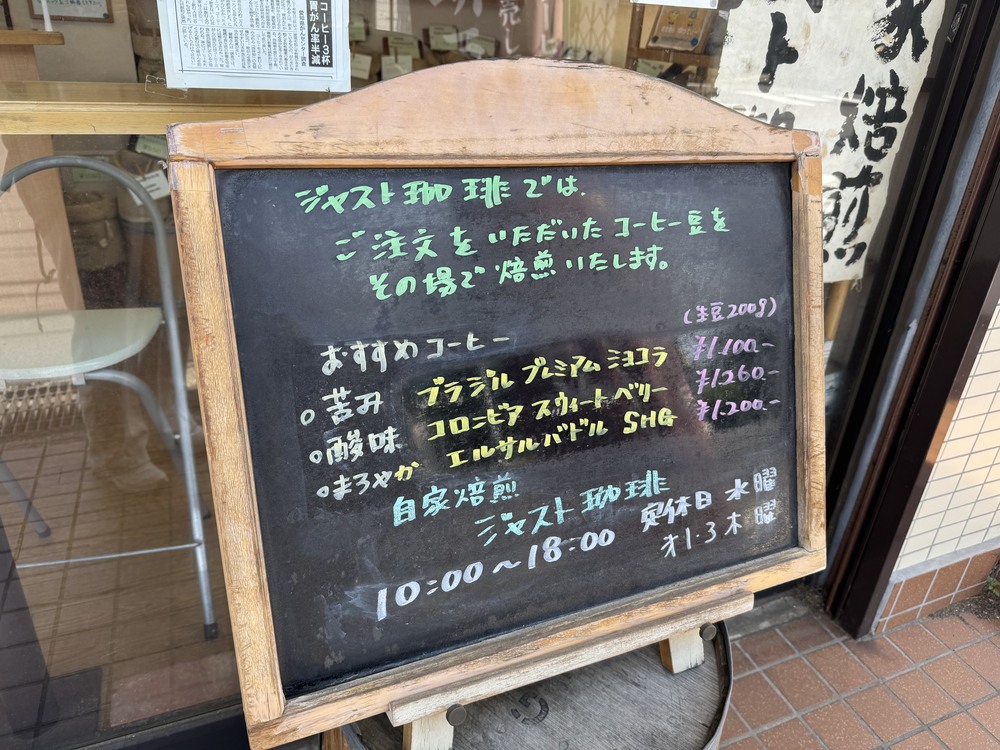 コーヒー3杯
胃がん率半減
ジャスト珈琲では、
ご注文をいただいたコーヒー豆を
その場で焙煎いたします。
(生豆200g)
おすすめコーヒー
○苦み ブラジル プレミアムショコラ ¥1.100.-
○酸味 コロンビア スウィートベリー ¥1.260.-
○まろやか エルサルバドル SHG ¥1.200.-
自家焙煎
ジャスト珈琲
10:00~18:00
定休日 水曜
オ1.3木曜
家焙煎